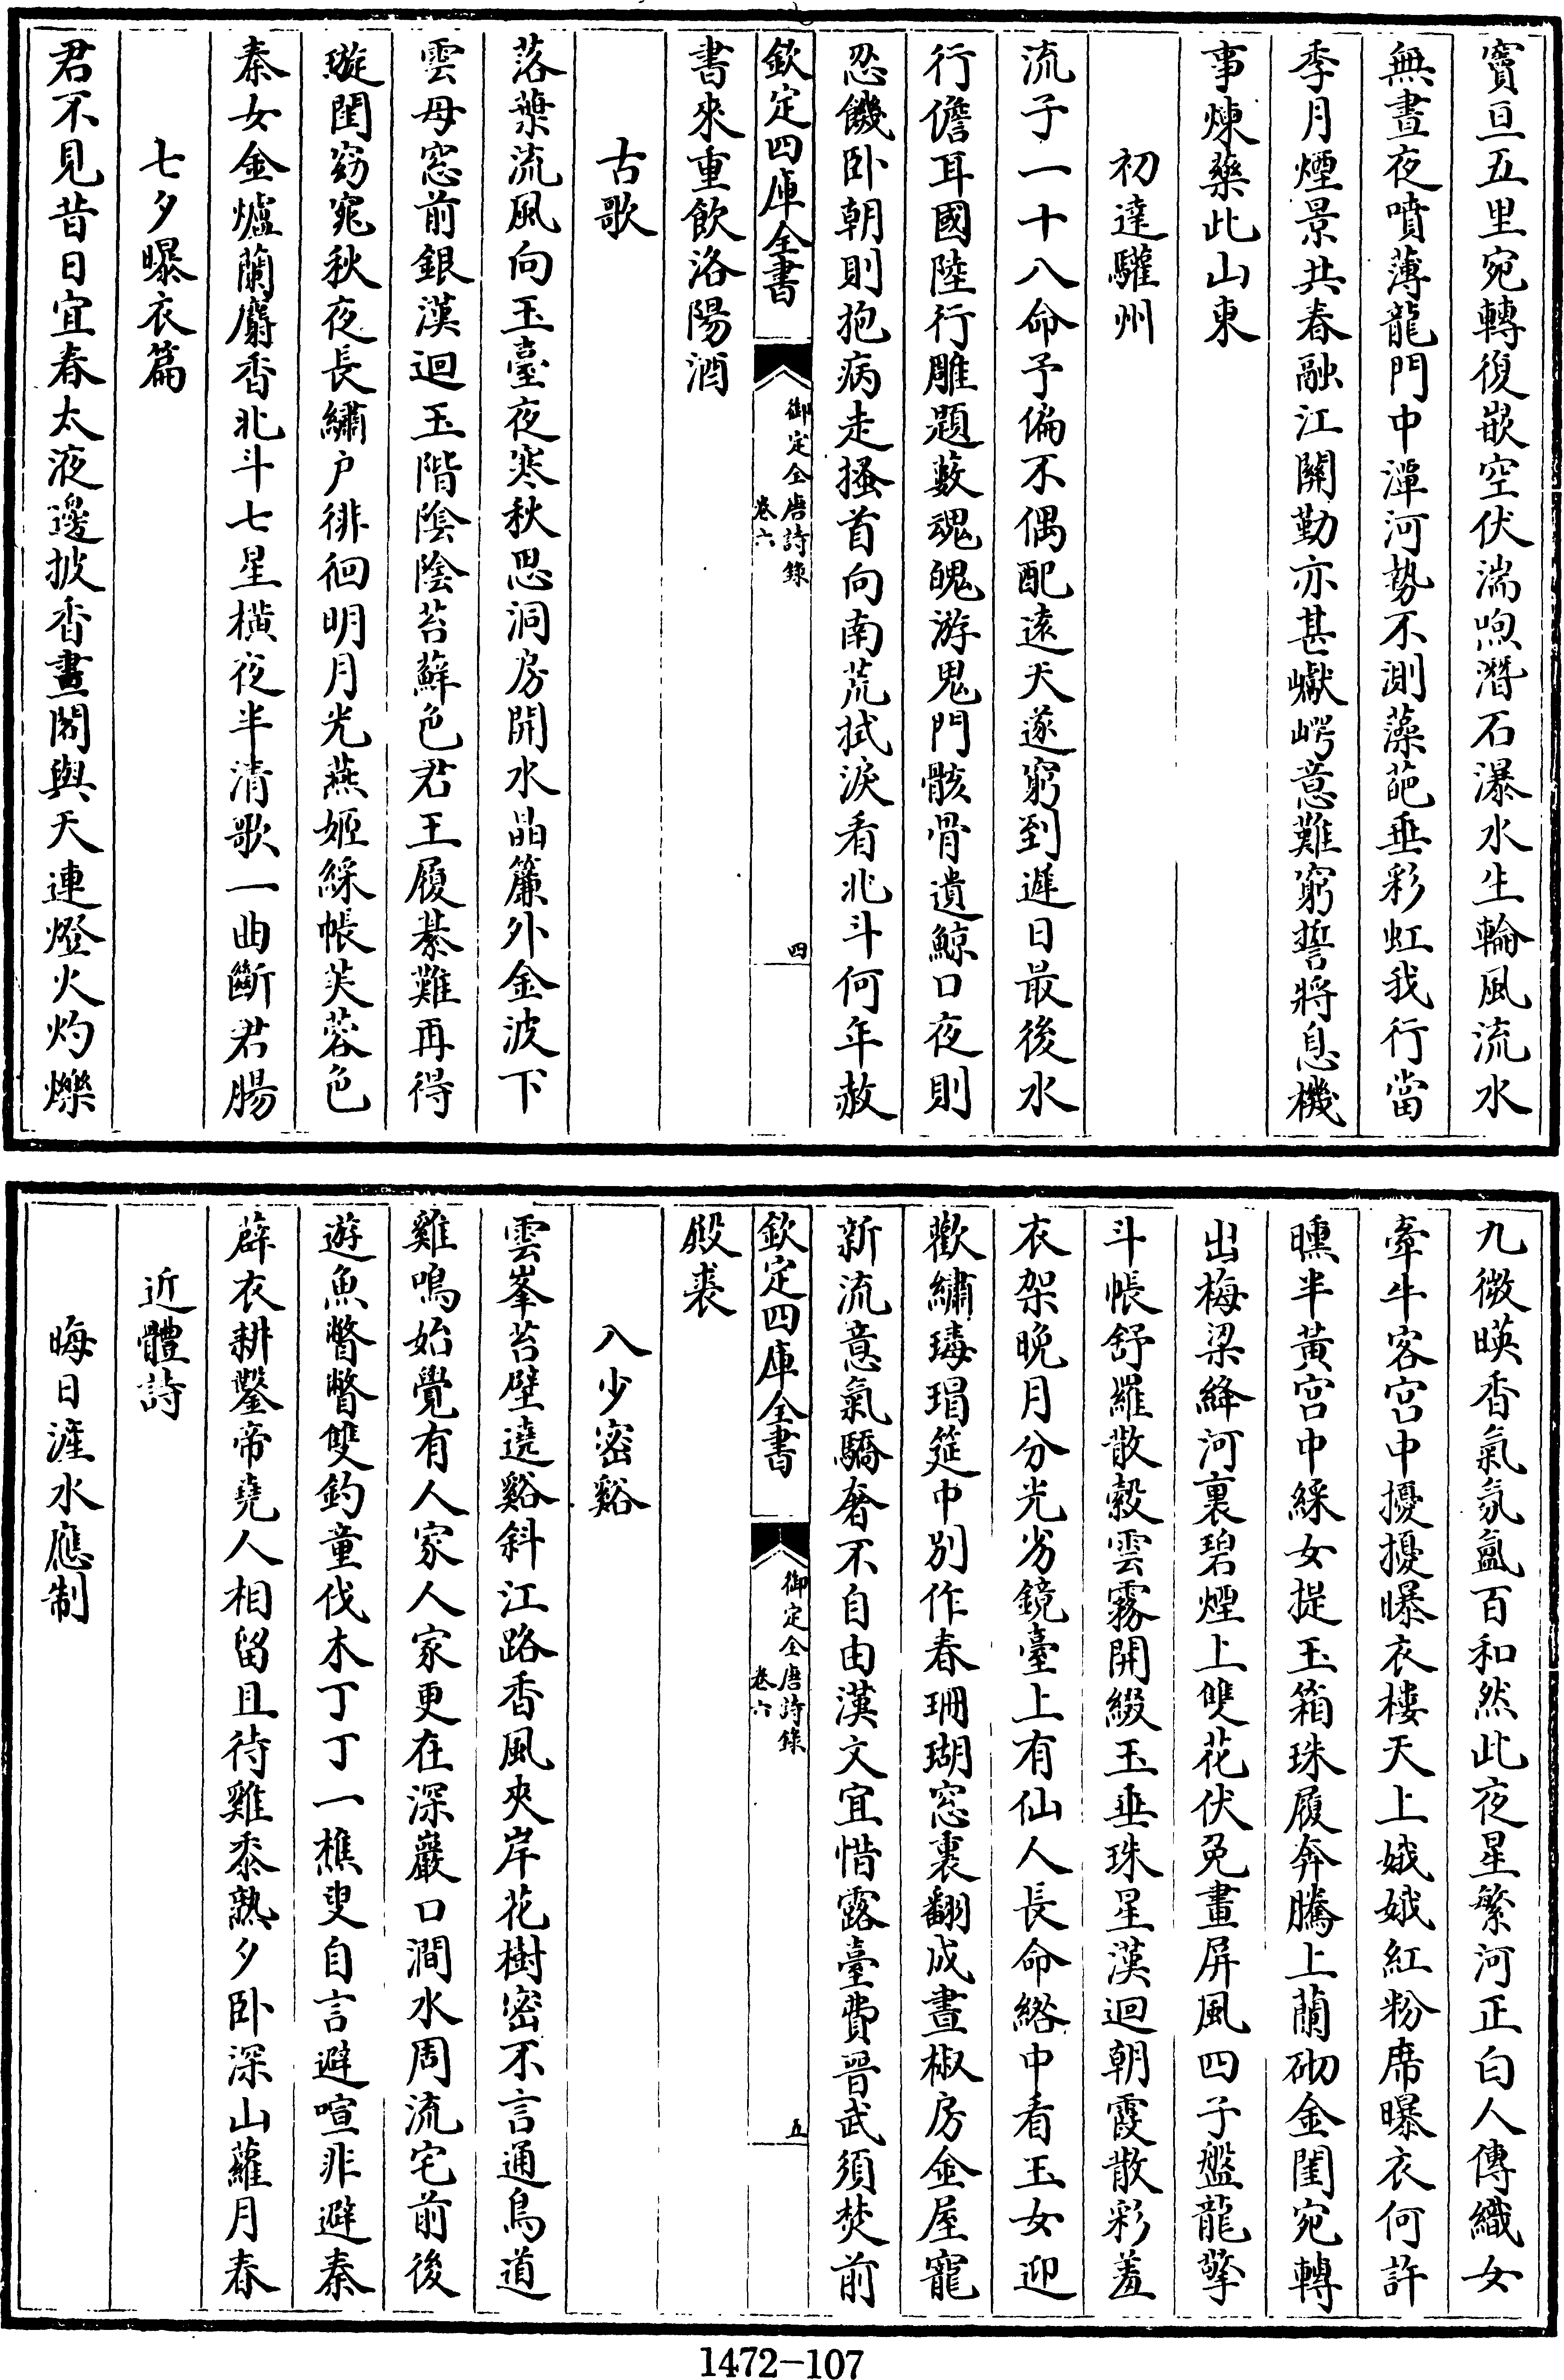 竇亘五里宛轉復嵌空伏湍喣潛石瀑水生輪風流水
無晝夜噴薄龍門中潭河勢不測藻葩垂彩虹我行當
季月煙景共春融江關勤亦甚巘崿意難窮誓將息機
事煉藥此山東
初達驩州
流子一十八命予偏不偶配遠天遂窮到遲日最後水
行儋耳國陸行雕題藪魂魄游鬼門骸骨遺鯨口夜則
忍饑卧朝則抱病走搔首向南荒拭淚看北斗何年赦
欽定四庫全書
御定全唐詩錄
卷六
四
書來重飲洛陽酒
古歌
落葉流風向玉臺夜寒秋思洞房開水晶簾外金波下
雲母窓前銀漢迴玉階陰陰苔蘚色君王履綦難再得
璇閨窈窕秋夜長繡户徘徊明月光燕姬綵帳芙蓉色
秦女金爐蘭麝香北斗七星横夜半清歌一曲斷君腸
七夕曝衣篇
君不見昔日宜春太液邊披香畫閣與天連燈火灼爍
九微暎香氣氛氲百和然此夜星繁河正白人傳織女
牽牛客宫中擾擾曝衣樓天上娥娥紅粉席曝衣何許
曛半黄宫中綵女提玉箱珠履奔騰上蘭砌金閨宛轉
出梅梁絳河裏碧煙上雙花伏兔畫屏風四子盤龍擎
斗帳舒羅散縠雲霧開綴玉垂珠星漢迴朝霞散彩羞
衣架晩月分光劣鏡臺上有仙人長命綹中看玉女迎
歡繡瑇瑁筵中别作春珊瑚窓裏翻成晝椒房金屋寵
新流意氣驕奢不自由漢文宜惜露臺費晉武須焚前
欽定四庫全書
御定全唐詩錄
卷六
五
殿裘
入少密谿
雲峯苔壁遶谿斜江路香風夾岸花樹密不言通鳥道
雞鳴始覺有人家人家更在深巖口澗水周流宅前後
遊魚瞥瞥雙釣童伐木丁丁一樵叟自言避喧非避秦
薜衣耕鑿帝堯人相留且待雞黍熟夕卧深山蘿月春
近體詩
晦日滻水應制
1472-107